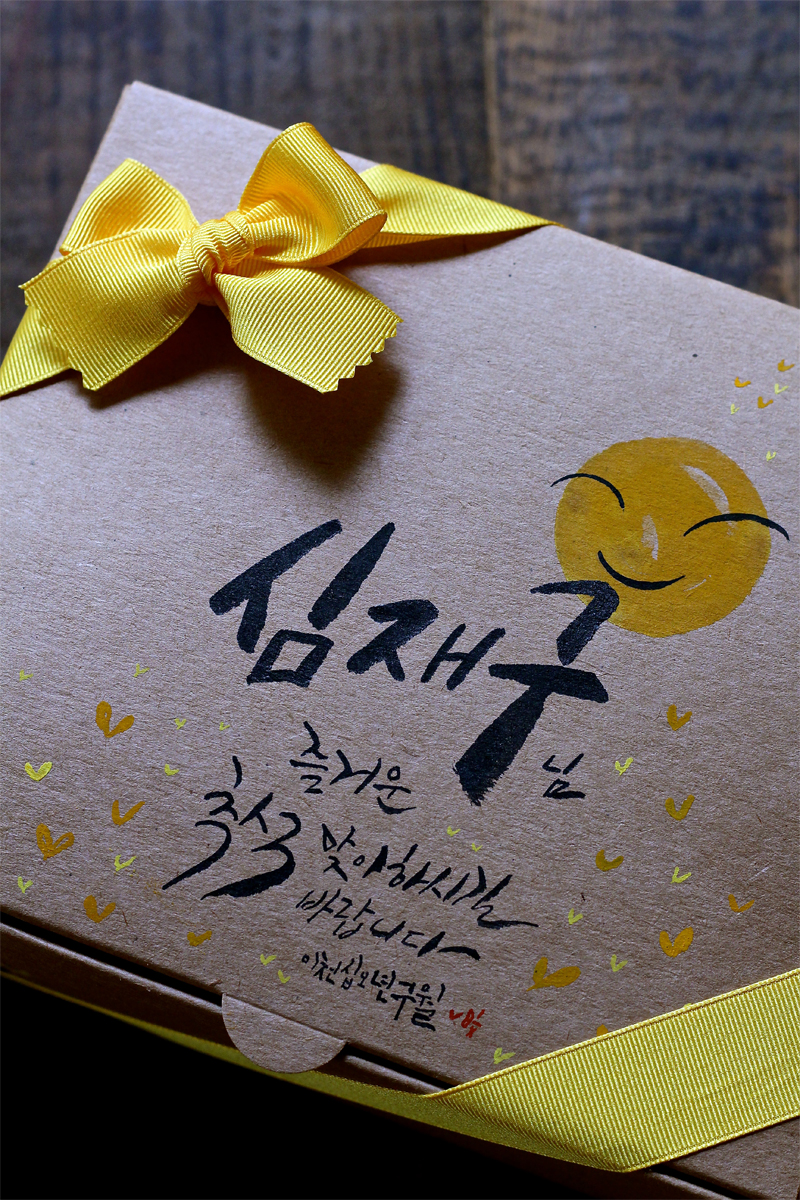 심재구 님
즐거운
추석 맞이하시길
바랍니다
이천십오년구월